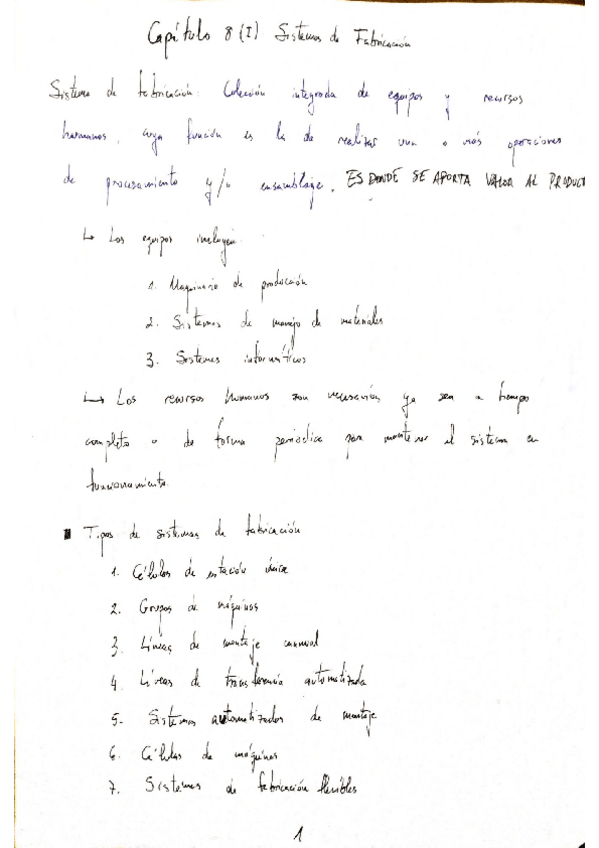 Capítulo 8 (I) Sistemas de Fabricación
Sistema de fabricación: Colección integrada de equipos y recursos
humanos, cuya función es la de realizar una o más operaciones
de procesamiento y/o ensamblaje. ES DONDE SE APORTA VALOR AL PRODUCT
↳ Los equipos incluyen
1. Maquinaria de producción
2. Sistemas de manejo de materiales
3. Sistemas informáticos
↳ Los recursos humanos son necesarios ya sea a tiempo
completo o de forma periodica para mantener el sistema en
funcionamiento.
Tipos de sistemas de fabricación
1. Células de estación única
2. Grupos de máquinas
3. Líneas de montaje manual
4. Líneas de transferencia automatizada
5. Sistemas automatizados de montaje
6. Células de máquinas
7. Sistemas de fabricación flexibles
1